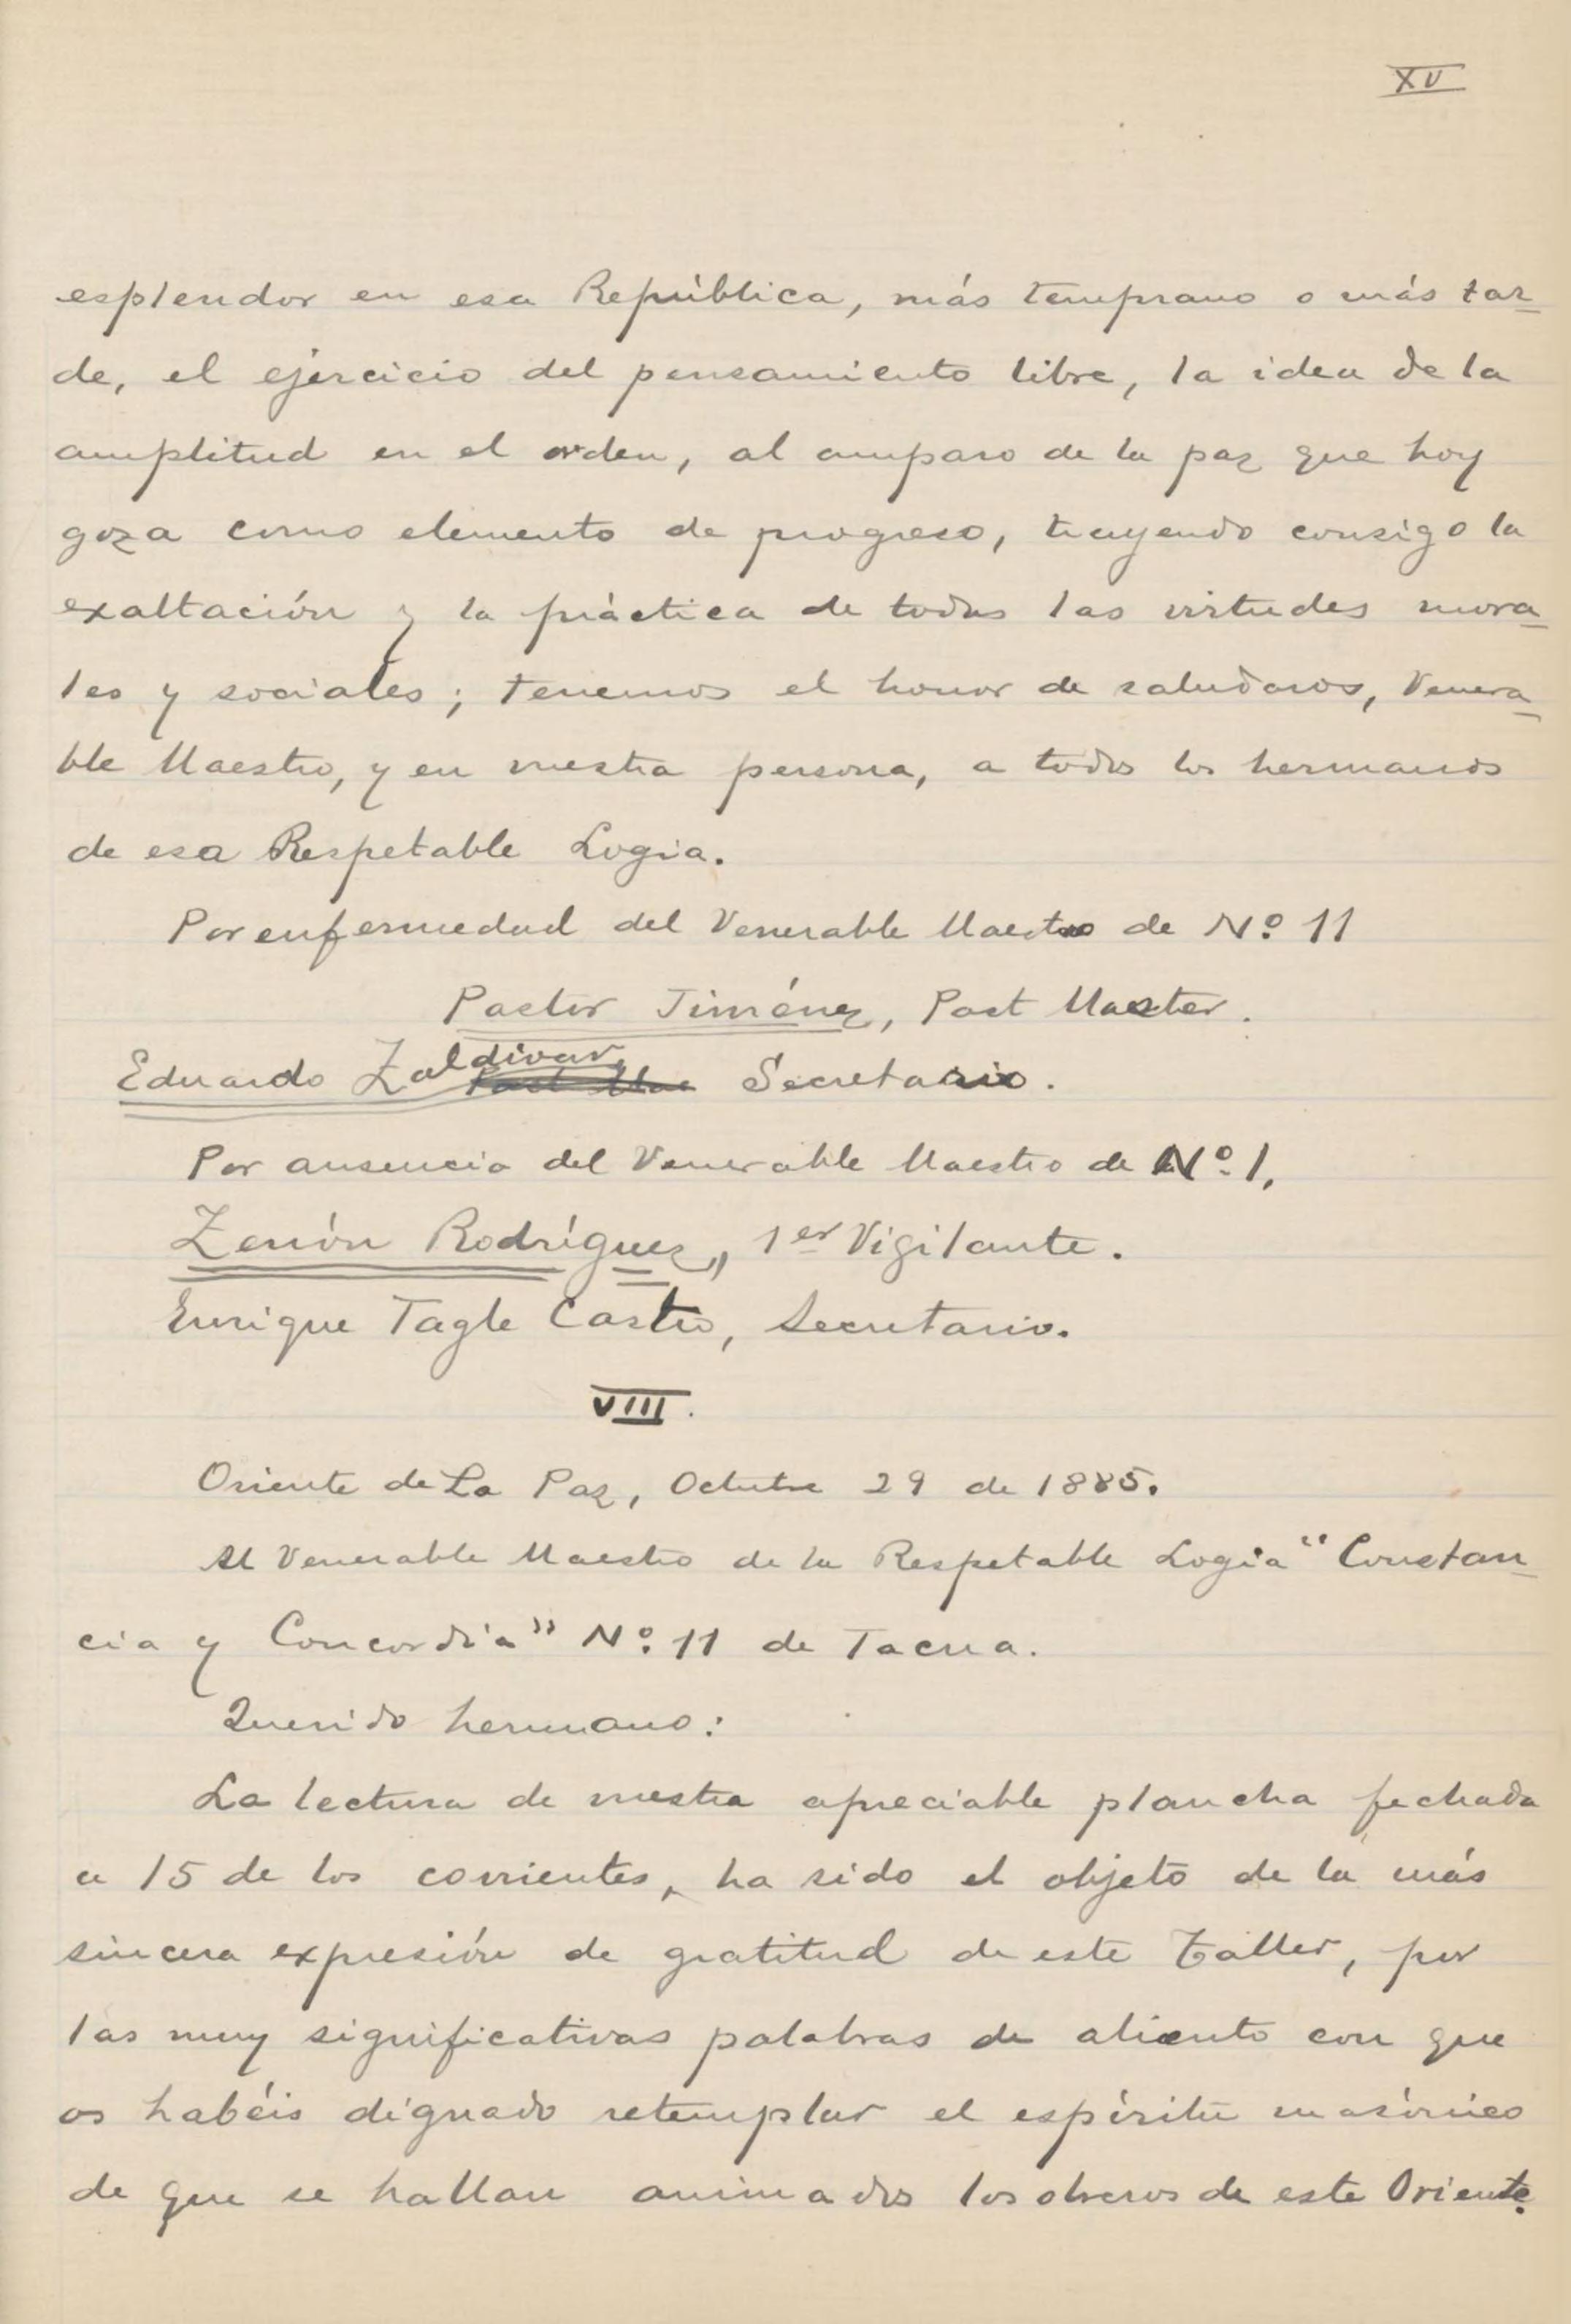 XV
esplendor en esa República, más temprano o más tar-
de, el ejercicio del pensamiento libre, la idea de la
amplitud en el orden, al amparo de la paz que hoy
goza como elemento de progreso, trayendo consigo la
exaltación y la práctica de todas las virtudes mora-
les y sociales; tenemos el honor de saludaros, Venera-
ble Maestro, y en vuestra persona, a todos los hermanos
de esa Respetable Logia.
Por enfermedad del Venerable Maestro de Nº 11
Pastor Jiménez, Past Master.
Eduardo Zaldivar, Secretario.
Por ausencia del Venerable Maestro de Nº 1,
Zenón Rodríguez, 1er Vigilante.
Enrique Tagle Castro, Secretario.
VIII.
Oriente de La Paz, Octubre 29 de 1885.
Al Venerable Maestro de la Respetable Logia "Constan-
cia y Concordia" Nº 11 de Tacna.
Querido hermano:
La lectura de vuestra apreciable plancha fechada
a 15 de los corrientes, ha sido el objeto de la más
sincera expresión de gratitud de este Taller, por
las muy significativas palabras de aliento con que
os habéis dignado retemplar el espíritu masónico
de que se hallan animados los obreros de este Oriente.